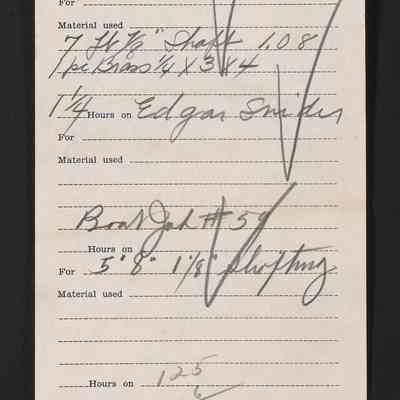 For
Material used
7 ft 7/8" Shaft 1.08
1 pc Brass 1/4 x 3 x 4
1 1/4 Hours on Edgar Snider
For
Material used
Boat Job # 59
Hours on
For 5' 8" 1 1/8" Shafting
Material used
Hours on 125
6